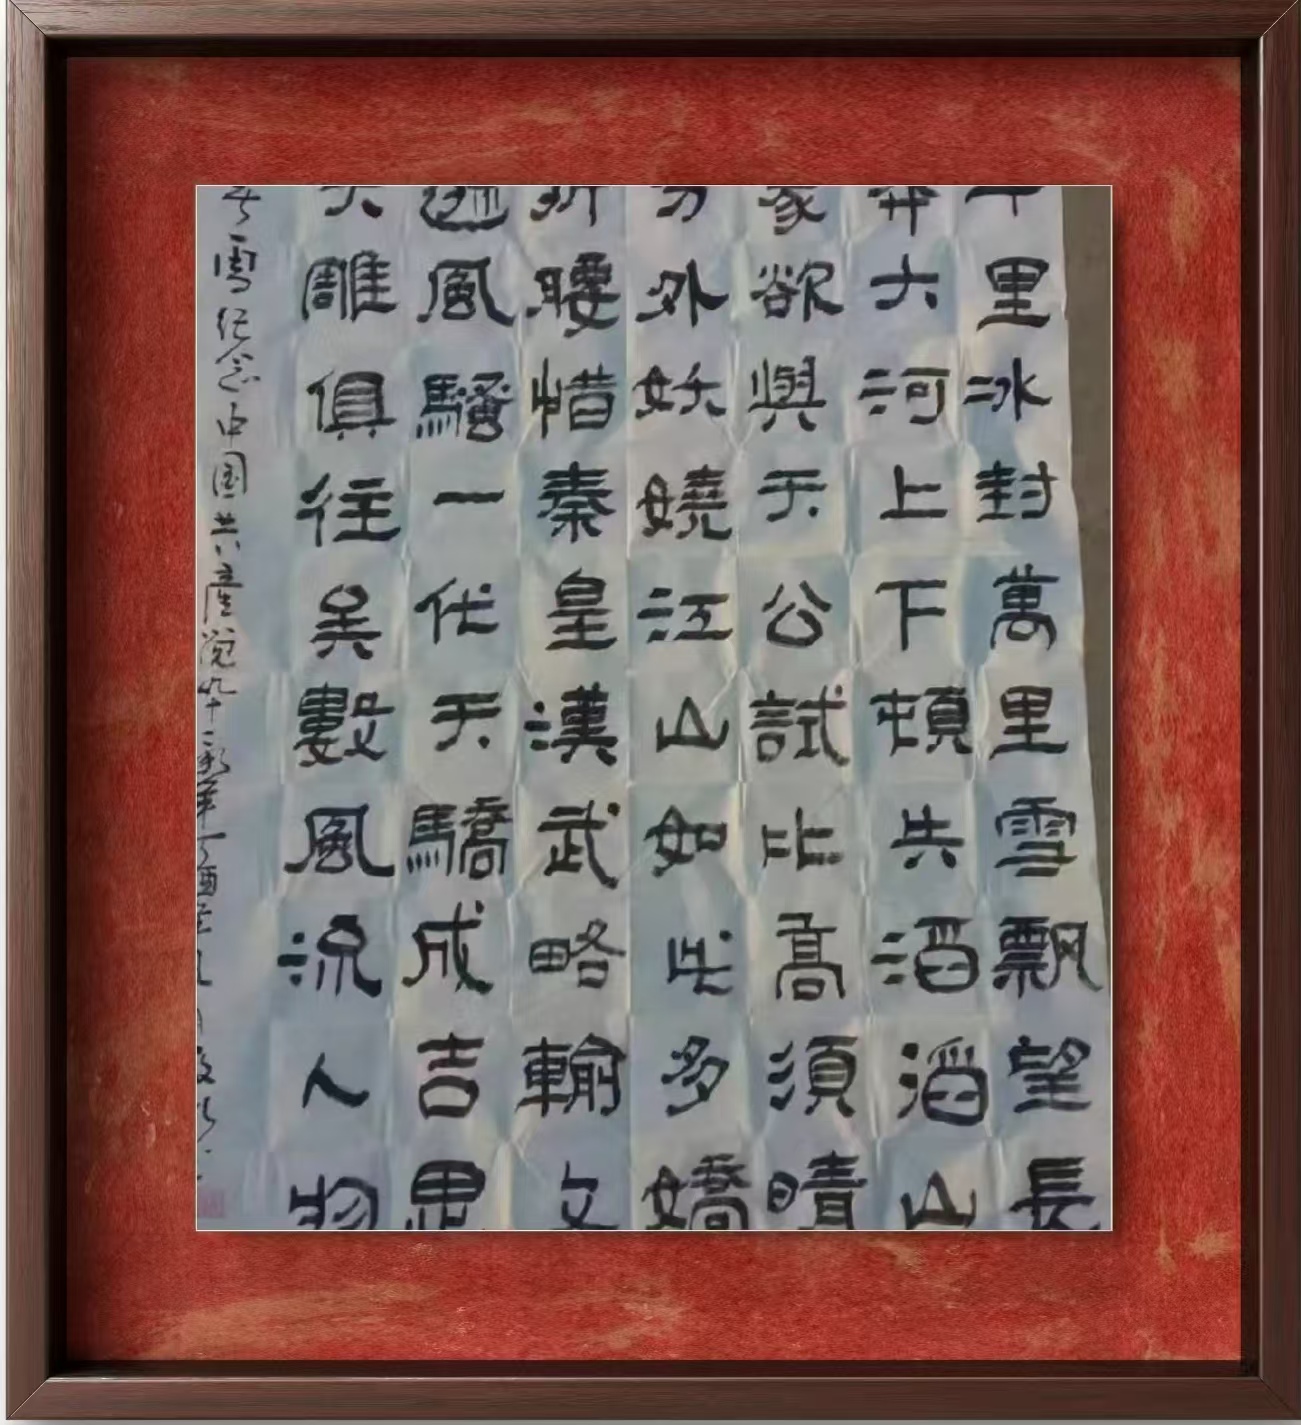 千里冰封萬里雪飄望長
莽大河上下頓失滔滔山
象欲與天公試比高須晴
分外妖嬈江山如此多嬌
折腰惜秦皇漢武略輸文
遜風騷一代天驕成吉思
大雕俱往矣數風流人物
雪纪念中国共產党九十年丁酉